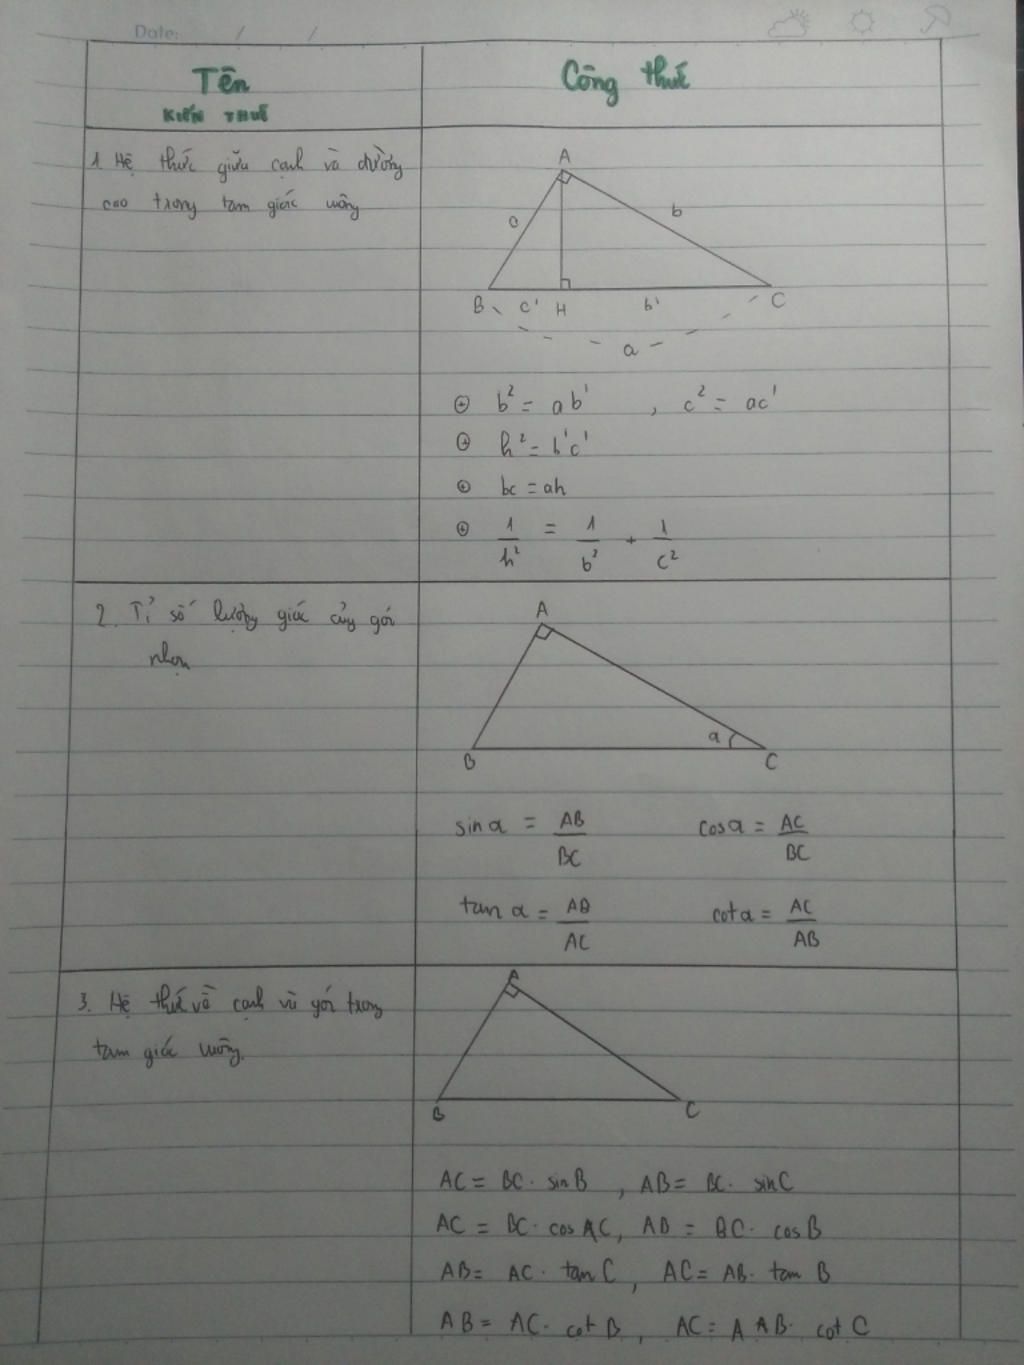 Date: / /
Tên
KIẾN THỨC
Công thức
1. Hệ thức giữa cạnh và đường
cao trong tam giác vuông
A
c
b
B c' H b' C
a
⊕ b² = ab' , c² = ac'
⊕ h² = b'c'
⊕ bc = ah
⊕ 1/h² = 1/b² + 1/c²
2. Tỉ số lượng giác của góc
nhọn
A
α
B C
sin α = AB/BC cos α = AC/BC
tan α = AB/AC cot α = AC/AB
3. Hệ thức về cạnh và góc trong
tam giác vuông.
A
B C
AC = BC. sin B , AB = BC. sin C
AC = BC. cos AC, AB = BC. cos B
AB = AC. tan C , AC = AB. tan B
AB = AC. cot B , AC = A AB. cot C